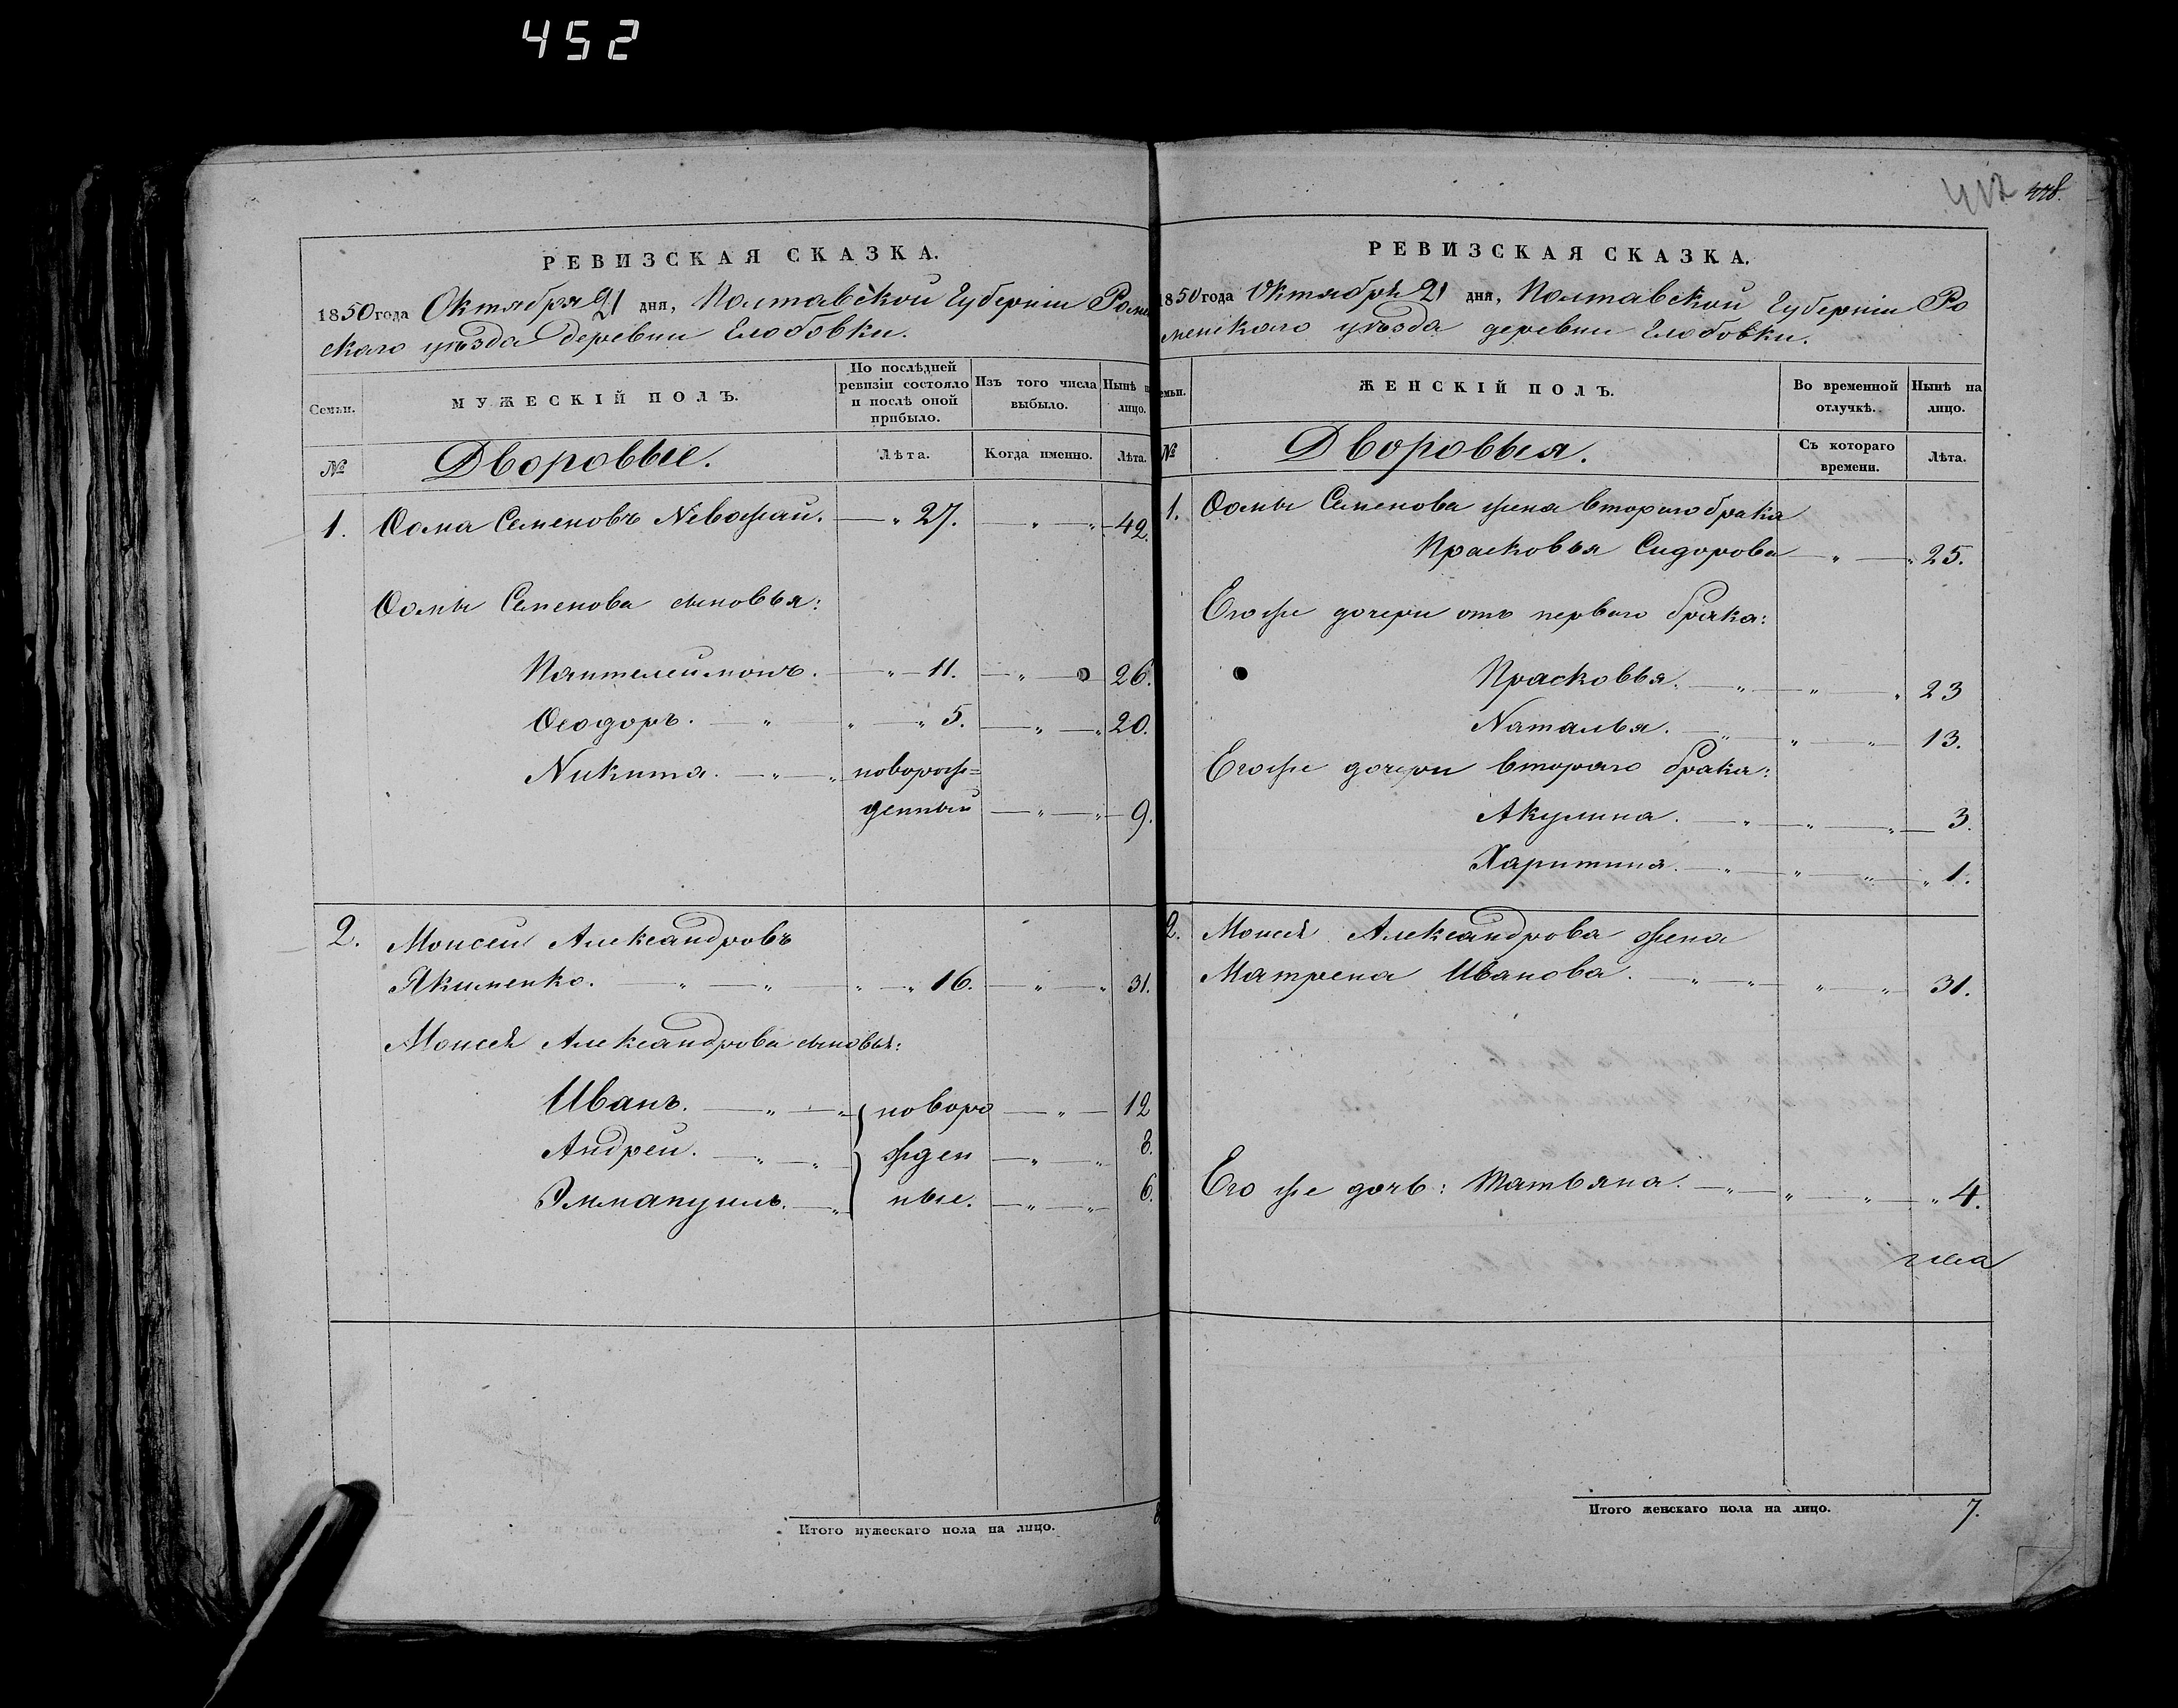 452
448.
РЕВИЗСКАЯ СКАЗКА.
1850 года Октября 21 дня, Полтавской Губерніи Роме
скаго уѣзда деревни Глобовки.
Семьи.
МУЖЕСКІЙ ПОЛЪ.
По послѣдней ревизіи состояло и послѣ оной прибыло.
Изъ того числа выбыло.
Нынѣ на лицо.
№
Дворовые.
Лѣта.
Когда именно.
Лѣта.
1. Ѳома Семеновъ Невожай. 27. 42.
Ѳомы Семенова сыновья:
Пантелеймонъ. 11. 26.
Ѳеодоръ. 5. 20.
Никита. новорож=
денный 9.
2. Моисей Александровъ
Якименко. 16. 31.
Моисея Александрова сыновья:
Иванъ. новоро 12
Андрей. жден 8.
Эммануилъ. ные. 6.
Итого мужескаго пола на лицо. 8
РЕВИЗСКАЯ СКАЗКА.
1850 года Октября 21 дня, Полтавской Губерніи Ро
менскаго уѣзда деревни Глобовки.
Семьи.
ЖЕНСКІЙ ПОЛЪ.
Во временной отлучкѣ.
Нынѣ на лицо.
№
Дворовыя.
Съ котораго времени.
Лѣта.
1. Ѳомы Семенова жена втораго брака
Прасковья Сидорова 25.
Его же дочери отъ перваго брака:
Прасковья. 23
Наталья. 13.
Его же дочери втораго брака:
Акулина. 3.
Харитина. 1.
2. Моисея Александрова жена
Матрена Иванова. 31.
Его же дочь: Татьяна. 4.
Итого женскаго пола на лицо. 7.